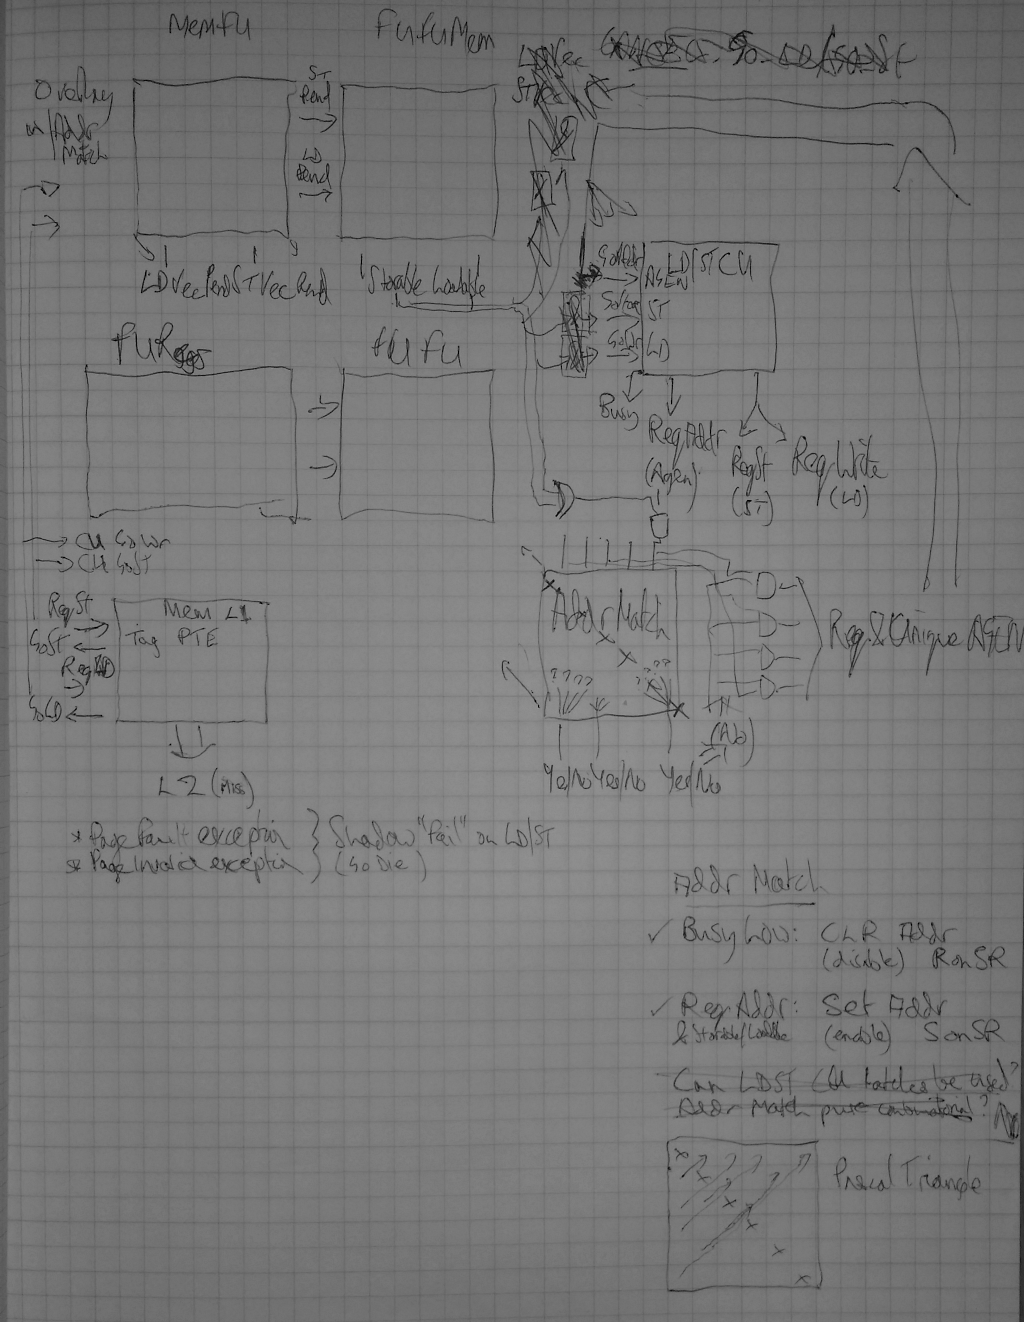 MemFU
FUFUMem
LDVec
STVec
Overlay
w/Addr
Match
ST
Pend
LD
Pend
LDVecPend STVecPend
Storable Loadable
GoAddr
LD/STCU
AGEN
GoStore
ST
LD
FURegs
FUFU
Busy
ReqAddr
(Agen)
ReqSt
(ST)
ReqWrite
(LD)
CU GoWr
CU GoST
ReqSt
GoST
ReqLD
GoLD
Mem L1
Tag PTE
L2 (Miss)
Addr Match
????
???
Yes/No Yes/No Yes/No
Req & Unique AGEN
* Page Fault exception
* Page Invalid exception
Shadow "Fail" on LD/ST
(GoDie)
Addr Match
✓ Busy Low: CLR Addr
(disable) RonSR
✓ ReqAddr: Set Addr
& Storable/Loadable (enable) SonSR
Can LDST CU latches be used?
Addr Match pure combinatorial? No
Triangle